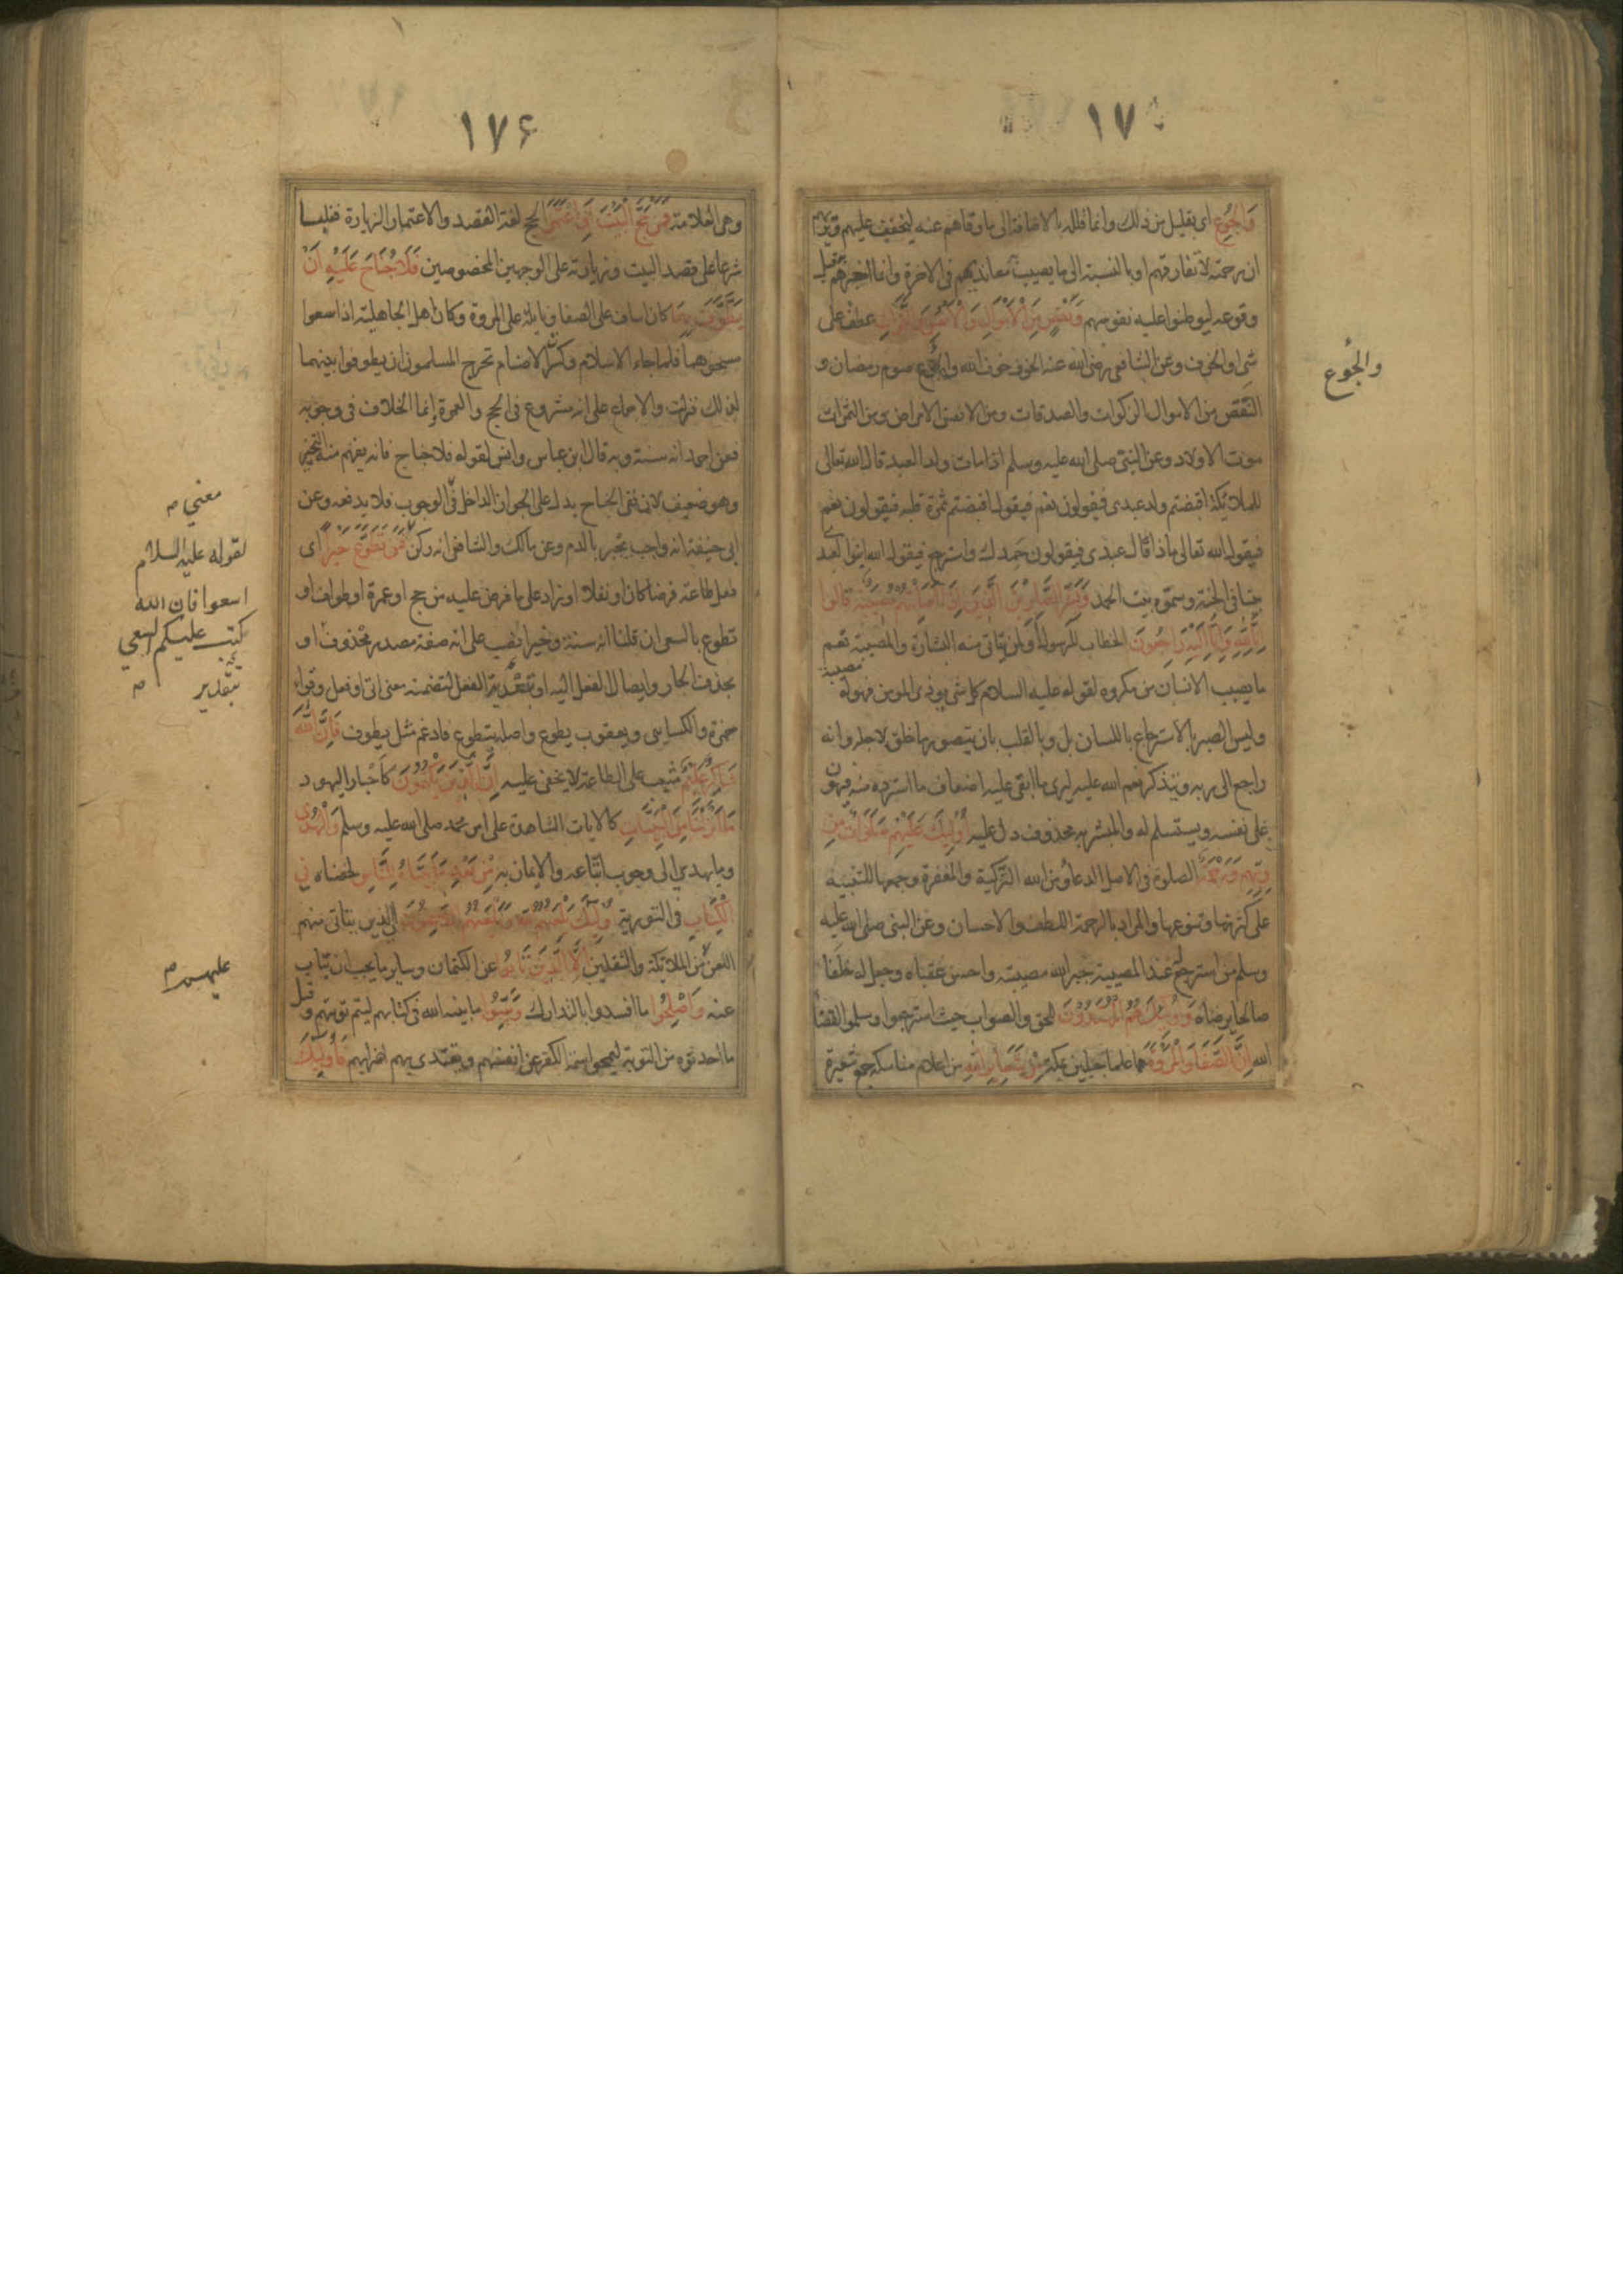 ١٧٥
وَالْجُوعِ اى بقليل من ذلك وانما قلله بالاضافة الى ما وقاهم عنه ليخفف عليهم ويريهم
ان رحمته لا تفارقهم او بالنسبة الى ما يصيب معانديهم فى الاخرة وانما اخبرهم قبل
وقوعه ليوطنوا عليه نفوسهم وَنَقْصٍ مِنَ الْاَمْوَالِ وَالْاَنْفُسِ وَالثَّمَرَاتِ عطف على
شئ او الخوف وعن الشافعى رضى الله عنه الخوف خوف الله والجوع صوم رمضان و
النقص من الاموال الزكوات والصدقات ومن الانفس الامراض ومن الثمرات
موت الاولاد وعن النبى صلى الله عليه وسلم اذا مات ولد العبد قال الله تعالى
للملائكة اقبضتم ولد عبدى فيقولون نعم فيقول اقبضتم ثمرة قلبه فيقولون نعم
فيقول الله تعالى ماذا قال عبدى فيقولون حمدك واسترجع فيقول الله ابنوا لعبدى
بيتا فى الجنة وسموه بيت الحمد وَبَشِّرِ الصَّابِرِينَ الَّذِينَ اِذَا اَصَابَتْهُمْ مُصِيبَةٌ قَالُوا
اِنَّا لِلّٰهِ وَاِنَّا اِلَيْهِ رَاجِعُونَ الخطاب للرسول او لمن يتاتى منه البشارة والمصيبة تعم
ما يصيب الانسان من مكروه لقوله عليه السلام كل شئ يوذى المومن فهو له مصيبة
وليس الصبر بالاسترجاع باللسان بل وبالقلب بان يتصور ما خلق لاجله وانه
راجع الى ربه ويتذكر نعم الله عليه ليرى ما ابقى عليه اضعاف ما استرده منه فيهون
على نفسه ويستسلم له والمبشر به محذوف دل عليه اُولٰئِكَ عَلَيْهِمْ صَلَوَاتٌ مِنْ
رَبِّهِمْ وَرَحْمَةٌ الصلوة فى الاصل الدعاء ومن الله التزكية والمغفرة وجمعها للتنبيه
على كثرتها وتنوعها والمراد بالرحمة اللطف والاحسان وعن النبى صلى الله عليه
وسلم من استرجع عند المصيبة جبر الله مصيبته واحسن عقباه وجعل له خلفا
صالحا يرضاه وَاُولٰئِكَ هُمُ الْمُهْتَدُونَ للحق والصواب حيث استرجعوا وسلموا لقضاء
الله اِنَّ الصَّفَا وَالْمَرْوَةَ هما علما جبلين بمكة مِنْ شَعَائِرِ اللّٰهِ من اعلام مناسكه جمع شعيرة
والجُوع
١٧۶
وهى العلامة فَمَنْ حَجَّ الْبَيْتَ اَوِ اعْتَمَرَ الحج لغة القصد والاعتمار الزيارة فغلبا
شرعا على قصد البيت وزيارته على الوجهين المخصوصين فَلَا جُنَاحَ عَلَيْهِ اَنْ
يَطَّوَّفَ بِهِمَا كان اساف على الصفا ونايلة على المروة وكان اهل الجاهلية اذا سعوا
مسحوهما فلما جاء الاسلام وكسر الاصنام تحرج المسلمون ان يطوفوا بينهما
لذلك فنزلت والاجماع على انه مشروع فى الحج والعمرة انما الخلاف فى وجوبه
فعن احمد انه سنة وبه قال ابن عباس وانس لقوله فلا جناح فانه يفهم منه التخيير
وهو ضعيف لان نفى الجناح يدل على الجواز الداخل فى الوجوب فلا يدفعه وعن
ابى حنيفة انه واجب يجبر بالدم وعن مالك والشافعى انه ركن فَمَنْ تَطَوَّعَ خَيْرًا اى
فعل طاعة فرضا كان او نفلا او زاد على ما فرض عليه من حج او عمرة او طواف او
تطوع بالسعى ان قلنا انه سنة وخيرا نصب على انه صفة مصدر محذوف او
بحذف الجار وايصال الفعل اليه او بتعدية الفعل لتضمنه معنى اتى او فعل وقرا
حمزة والكسايى ويعقوب يطوع واصله يتطوع فادغم مثل يطوف فَاِنَّ اللّٰهَ
شَاكِرٌ عَلِيمٌ مثيب على الطاعة لا يخفى عليه اِنَّ الَّذِينَ يَكْتُمُونَ كاحبار اليهود
مَا اَنْزَلْنَا مِنَ الْبَيِّنَاتِ كالايات الشاهدة على امر محمد صلى الله عليه وسلم وَالْهُدٰى
وما يهدى الى وجوب اتباعه والايمان به مِنْ بَعْدِ مَا بَيَّنَّاهُ لِلنَّاسِ لخصناه فِى
الْكِتَابِ فى التورية اُولٰئِكَ يَلْعَنُهُمُ اللّٰهُ وَيَلْعَنُهُمُ اللَّاعِنُونَ اى الذين يتاتى منهم
اللعن من الملائكة والثقلين اِلَّا الَّذِينَ تَابُوا عن الكتمان وساير ما يجب ان يتاب
عنه وَاَصْلَحُوا ما افسدوا بالتدارك وَبَيَّنُوا ما بينه الله فى كتابهم ليتم توبتهم وقيل
ما احدثوه من التوبة ليمحوا سمة الكفر عن انفسهم ويقتدى بهم اضرابهم فَاُولٰئِكَ
معنى م
لقوله عليه السلام
اسعوا فان الله
كتب عليكم السعى
بتقدير م
عليهم م